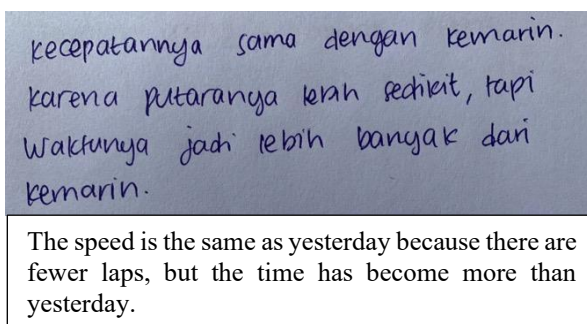 kecepatannya sama dengan kemarin.
karena putaranya lebih sedikit, tapi
waktunya jadi lebih banyak dari
kemarin.
The speed is the same as yesterday because there are
fewer laps, but the time has become more than
yesterday.